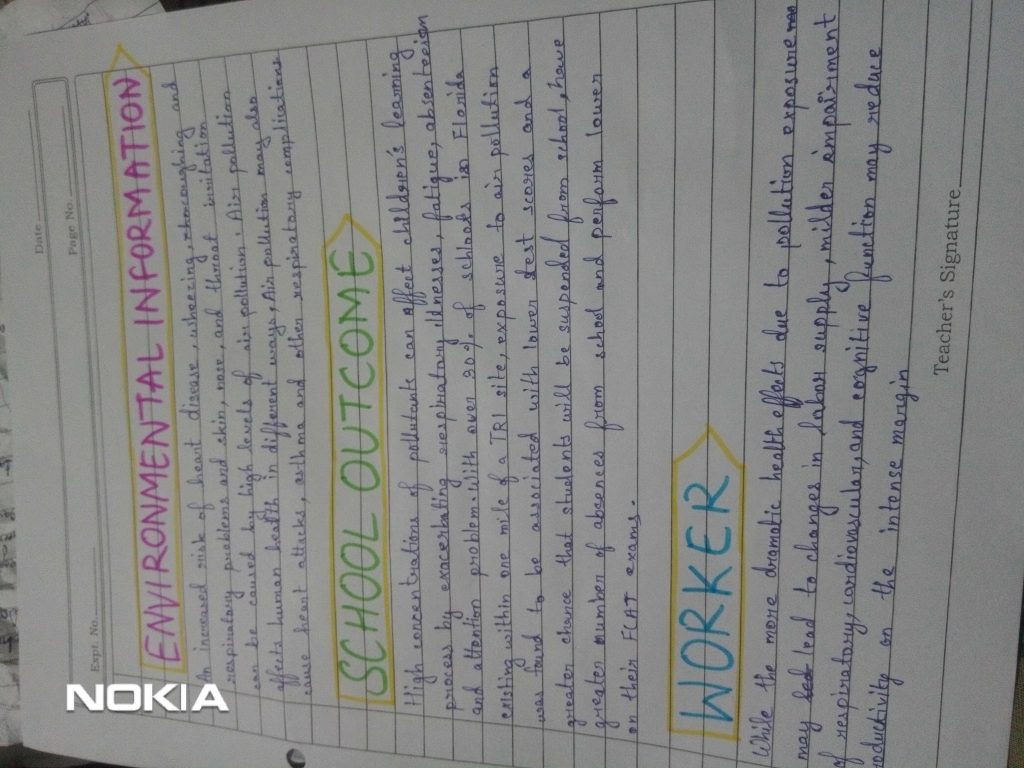 Date
Expt. No.
Page No.
ENVIRONMENTAL INFORMATION
An increased risk of heart disease, wheezing, coughing and
respiratory problems and skin, nose, and throat irritation
can be caused by high levels of air pollution. Air pollution
affects human health in different ways, Air pollution may also
cause heart attacks, asthma and other respiratory complications
SCHOOL OUTCOME
High concentrations of pollutants can affect children's learning
process by exacerbating respiratory illnesses, fatigue, absenteeism
and attention problem. With over 30% of schools in Florida
existing within one mile of a TRI site, exposure to air pollution
was found to be associated with lower test scores and a
greater chance that students will be suspended from school, have
greater number of absences from school and perform lower
on their FCAT exams.
WORKER
While the more dramatic health effects due to pollution exposure
may lead to changes in labour supply, milder impairment
of respiratory, cardiovascular, and cognitive function may reduce
roductivity on the intense margin
Teacher's Signature
NOKIA